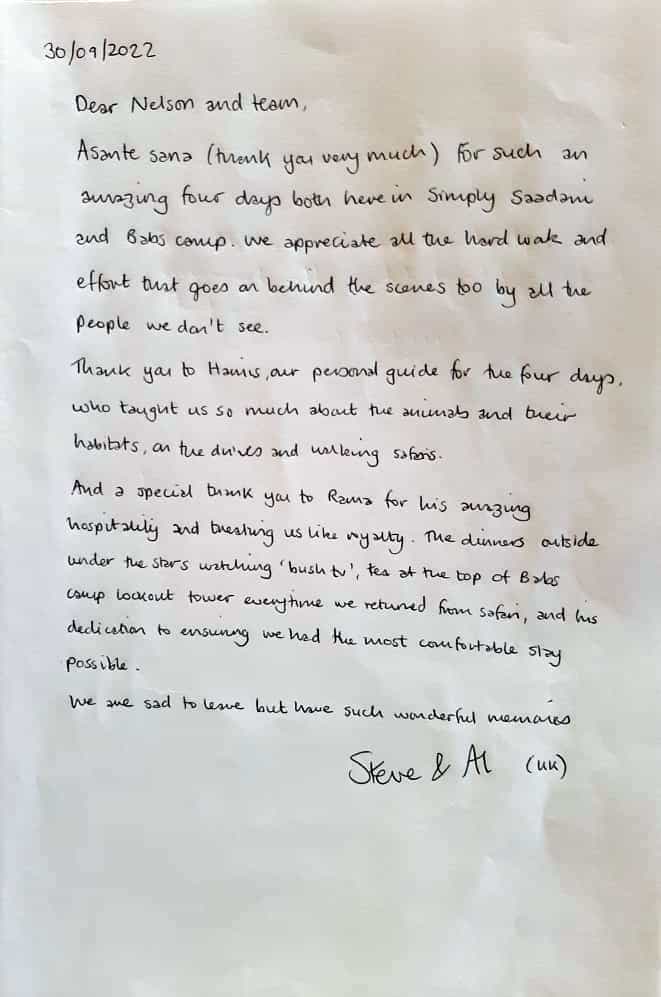 30/09/2022
Dear Nelson and team,
Asante sana (thank you very much) for such an
amazing four days both here in Simply Saadani
and Babs camp. We appreciate all the hard work and
effort that goes on behind the scenes too by all the
people we don't see.
Thank you to Hamis, our personal guide for the four days,
who taught us so much about the animals and their
habitats, on the drives and walking safaris.
And a special thank you to Rama for his amazing
hospitality and treating us like royalty. The dinners outside
under the stars watching 'bush tv', tea at the top of Babs
camp lookout tower everytime we returned from safari, and his
dedication to ensuring we had the most comfortable stay
possible.
We are sad to leave but have such wonderful memories
Steve & Al (UK)